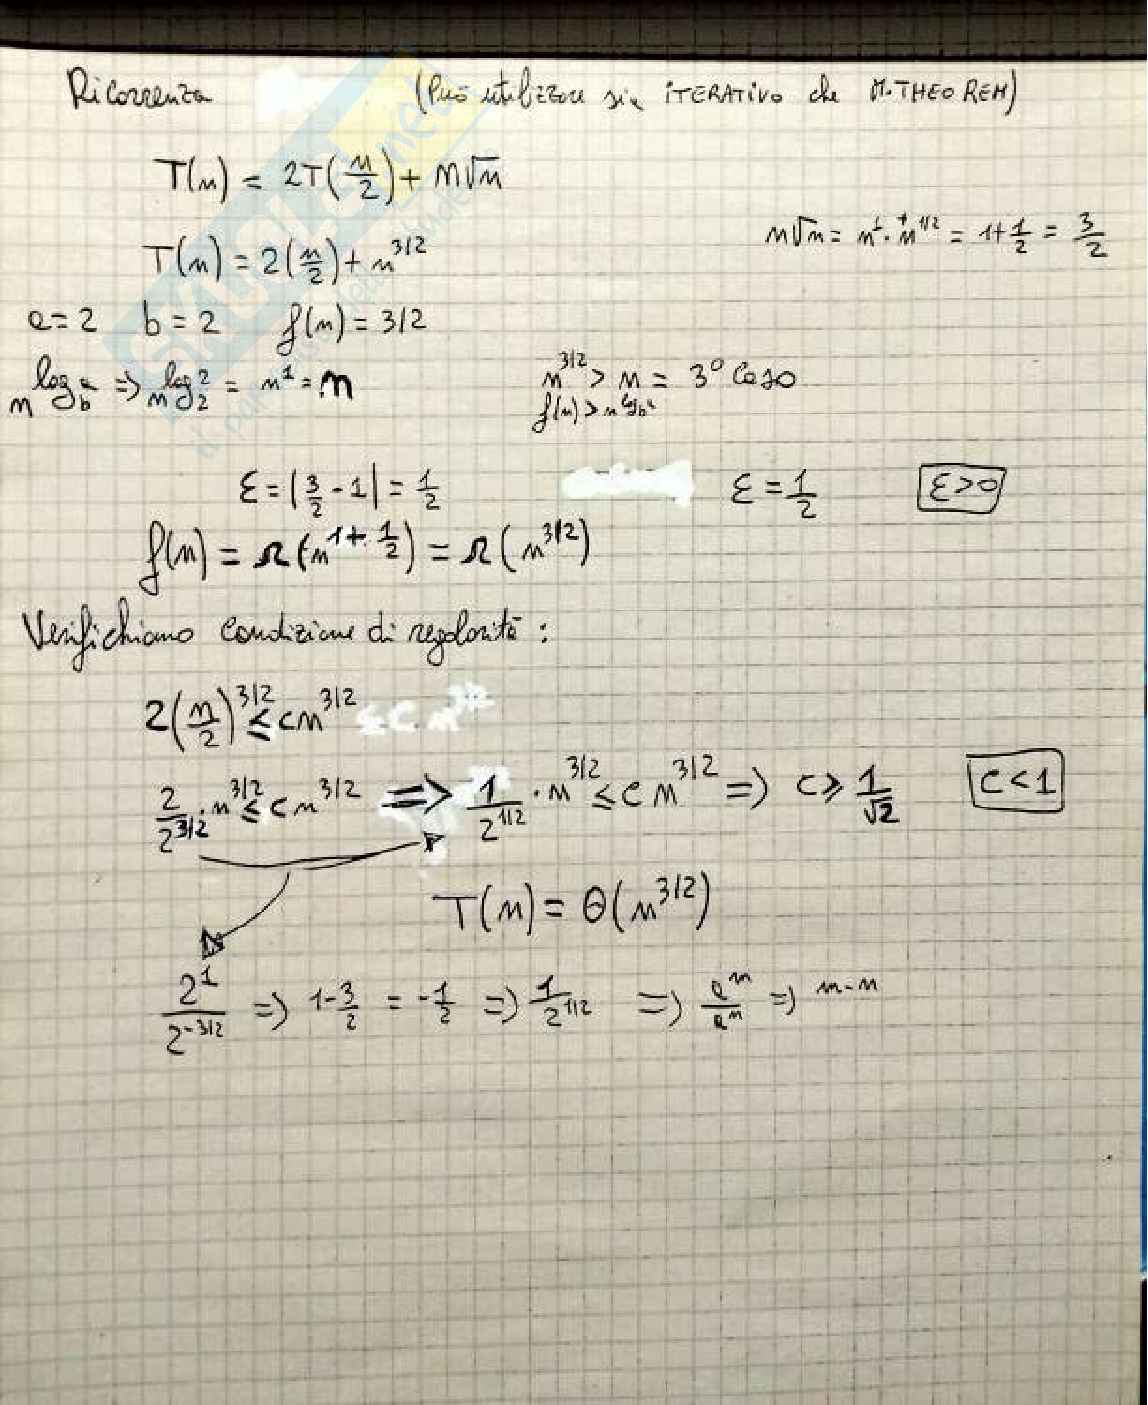 Ricorrenza (Può utilizzare sia ITERATIVO che M.THEOREM)
T(n) = 2T(n/2) + n√n
n√n = n^1 · n^1/2 = 1+1/2 = 3/2
T(n) = 2(n/2) + n^3/2
a=2 b=2 f(n) = 3/2
n^log_b a => n^log_2 2 = n^1 = n
n^3/2 > n = 3° Caso
f(n) > n^log_b a
ε = |3/2 - 1| = 1/2 ε = 1/2 ε>0
f(n) = Ω(n^1+1/2) = Ω(n^3/2)
Verifichiamo condizione di regolarità :
2(n/2)^3/2 ≤ cn^3/2 ≤ c · n^3/2
2/2^3/2 · n^3/2 ≤ c n^3/2 => 1/2^1/2 · n^3/2 ≤ c n^3/2 => c ≥ 1/√2 c<1
T(n) = Θ(n^3/2)
2^1/2^-3/2 => 1-3/2 = -1/2 => 1/2^1/2 => a^m/a^n => m-n